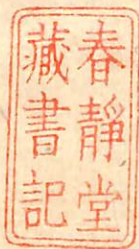 春靜堂
藏書記